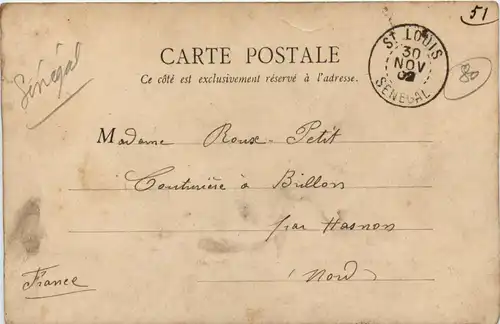 51
Sénégal
CARTE POSTALE
Ce côté est exclusivement réservé à l'adresse.
ST LOUIS
30
NOV
02
SENEGAL
80
Madame Roux-Petit
Couturière à Brillon
par Hasnon
Nord
France